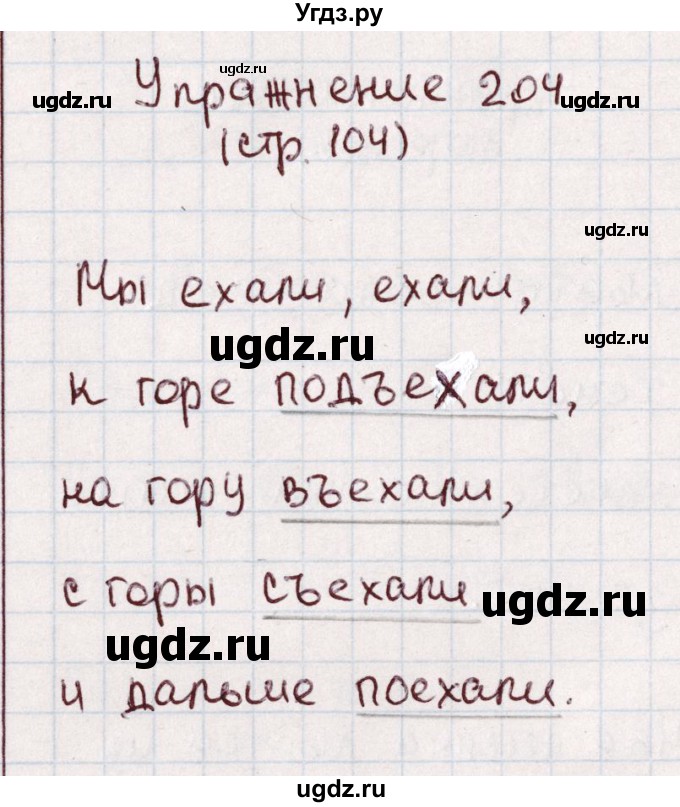 Угдз.ру
ugdz.ru
ugdz.ru Упражнение 204 ugdz.ru
(стр. 104)
ugdz.ru
Мы ехали, ехали,
ugdz.ru ugdz.ru
к горе подъехали,
на гору въехали,
с горы съехали ugdz.ru
ugdz.ru
и дальше поехали.
ugdz.ru